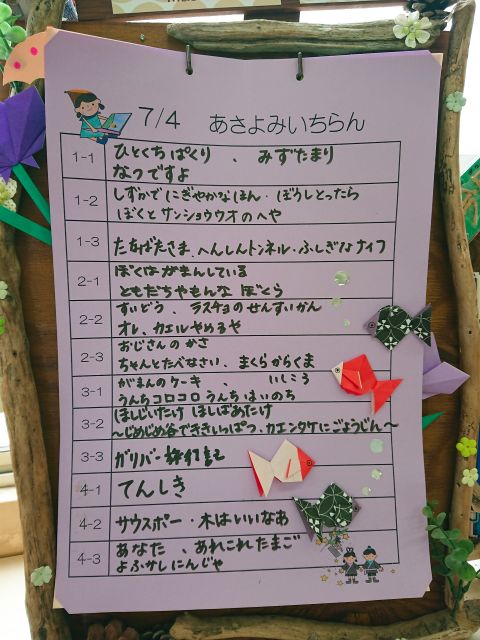 7/4 あさよみいちらん
1-1 ひとくちぱくり 、 みずたまり
なつですよ
1-2 しずかでにぎやかなほん・ぼうしとったら
ぼくとサンショウウオのへや
1-3 たなばたさま、へんしんトンネル・ふしぎなナイフ
2-1 ぼくはがまんしている
ともだちやもんな ぼくら
2-2 すいどう、 ラスチョのせんすいかん
オレ、カエルやめるや
2-3 おじさんのかさ
ちゃんとたべなさい、まくらからくま
3-1 がまんのケーキ 、 いしころ
うんちコロコロうんちはいのち
3-2 ほしじいたけ ほしばあたけ
〜じめじめ谷でききいっぱつ、カエンタケにごようじん〜
3-3 ガリバー旅行記
4-1 てんしき
4-2 サウスポー・木はいいなあ
4-3 あなた 、あれこれたまご
よふかしにんじゃ